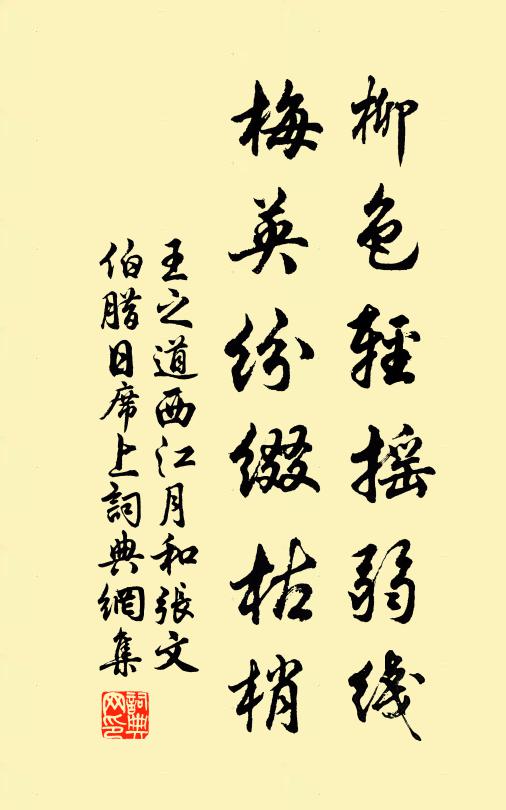 柳色輕摇弱线
梅英纷缀枯梢
王之道西江月和張文
伯腊日席上詞典網集
詞典网印